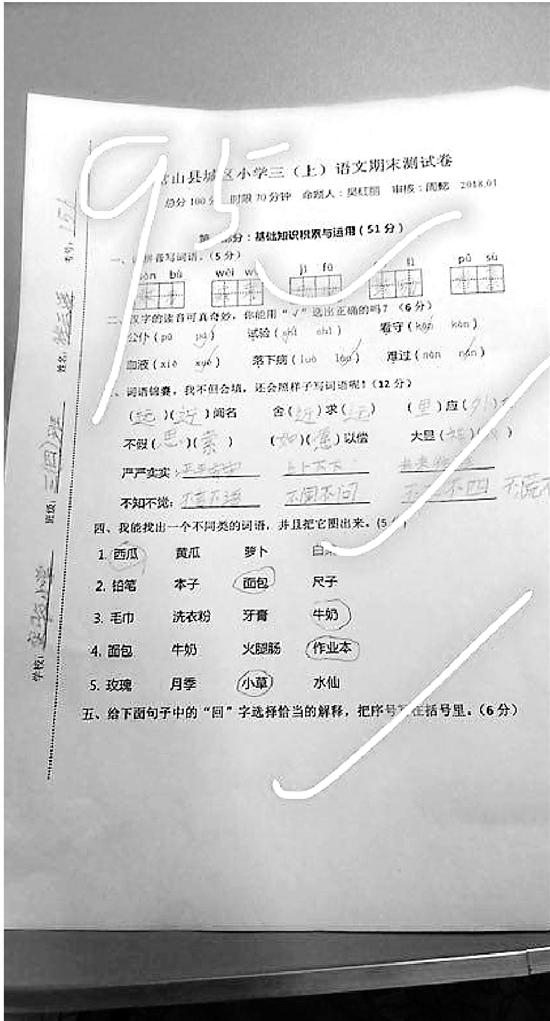 95
山县城区小学三（上）语文期末测试卷
总分100分 时限70分钟 命题人：吴红丽 审核：周 2018.01
部分：基础知识积累与运用（51分）
拼音写词语。（5分）
bù wèi jī fǔ pū sù
二、汉字的读音可真奇妙，你能用“√”选出正确的吗？（6分）
公仆（pū pú） 试验（shì shì） 看守（kān kàn）
血液（xiě xuè） 落下病（luò lào） 难过（nán nàn）
、词语锦囊，我不但会填，还会照样子写词语呢！（12分）
（远）（近）闻名 舍（近）求（远） （里）应（外）
不假（思）（索） （如）（愿）以偿 大显（）（）
严严实实： 上上下下
不知不觉： 不闻不问 不三不四
四、我能找出一个不同类的词语，并且把它圈出来。（5分）
1. 西瓜 黄瓜 萝卜 白菜
2. 铅笔 本子 面包 尺子
3. 毛巾 洗衣粉 牙膏 牛奶
4. 面包 牛奶 火腿肠 作业本
5. 玫瑰 月季 小草 水仙
五、给下面句子中的“回”字选择恰当的解释，把序号写在括号里。（6分）
学校：实验小学 班级：三（四）班 姓名： 考号：151